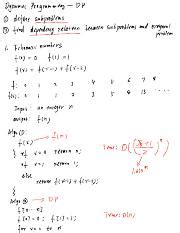 Dynamic Programming — DP
① define subproblems
② find dependency relation between subproblems and original problem
1. Fibonacci numbers
f(0) = 0 f(1) = 1
f(x) = f(x-1) + f(x-2)
x: 0 1 2 3 4 5 6 7 8
f(x): 0 1 1 2 3 5 8 13 ...
Input: an integer n
output: f(n)
Algo ①: f(n)
f(x)
if x = 0 return 0;
if x = 1 return 1;
else
return f(x-1) + f(x-2)
Time: O((√5+1/2)^n)
1.618^n
Algo ②: DP
f[0] = 0 f[1] = 1
for x = 2 to n
Time: O(n)